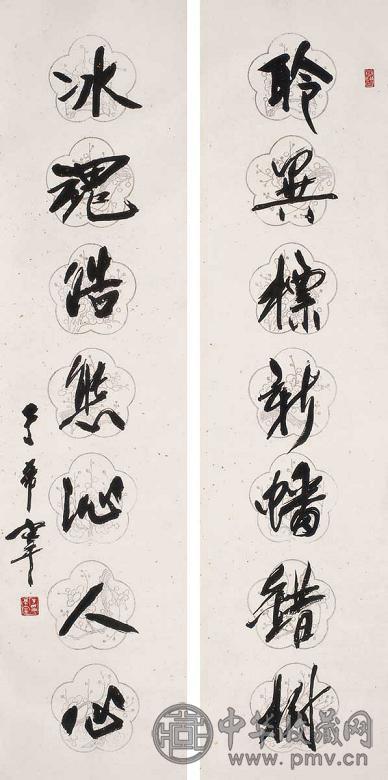 聆異標新蟠錯樹
冰魂皓態沁人心
于希寧
中华收藏网
www.pmv.cn